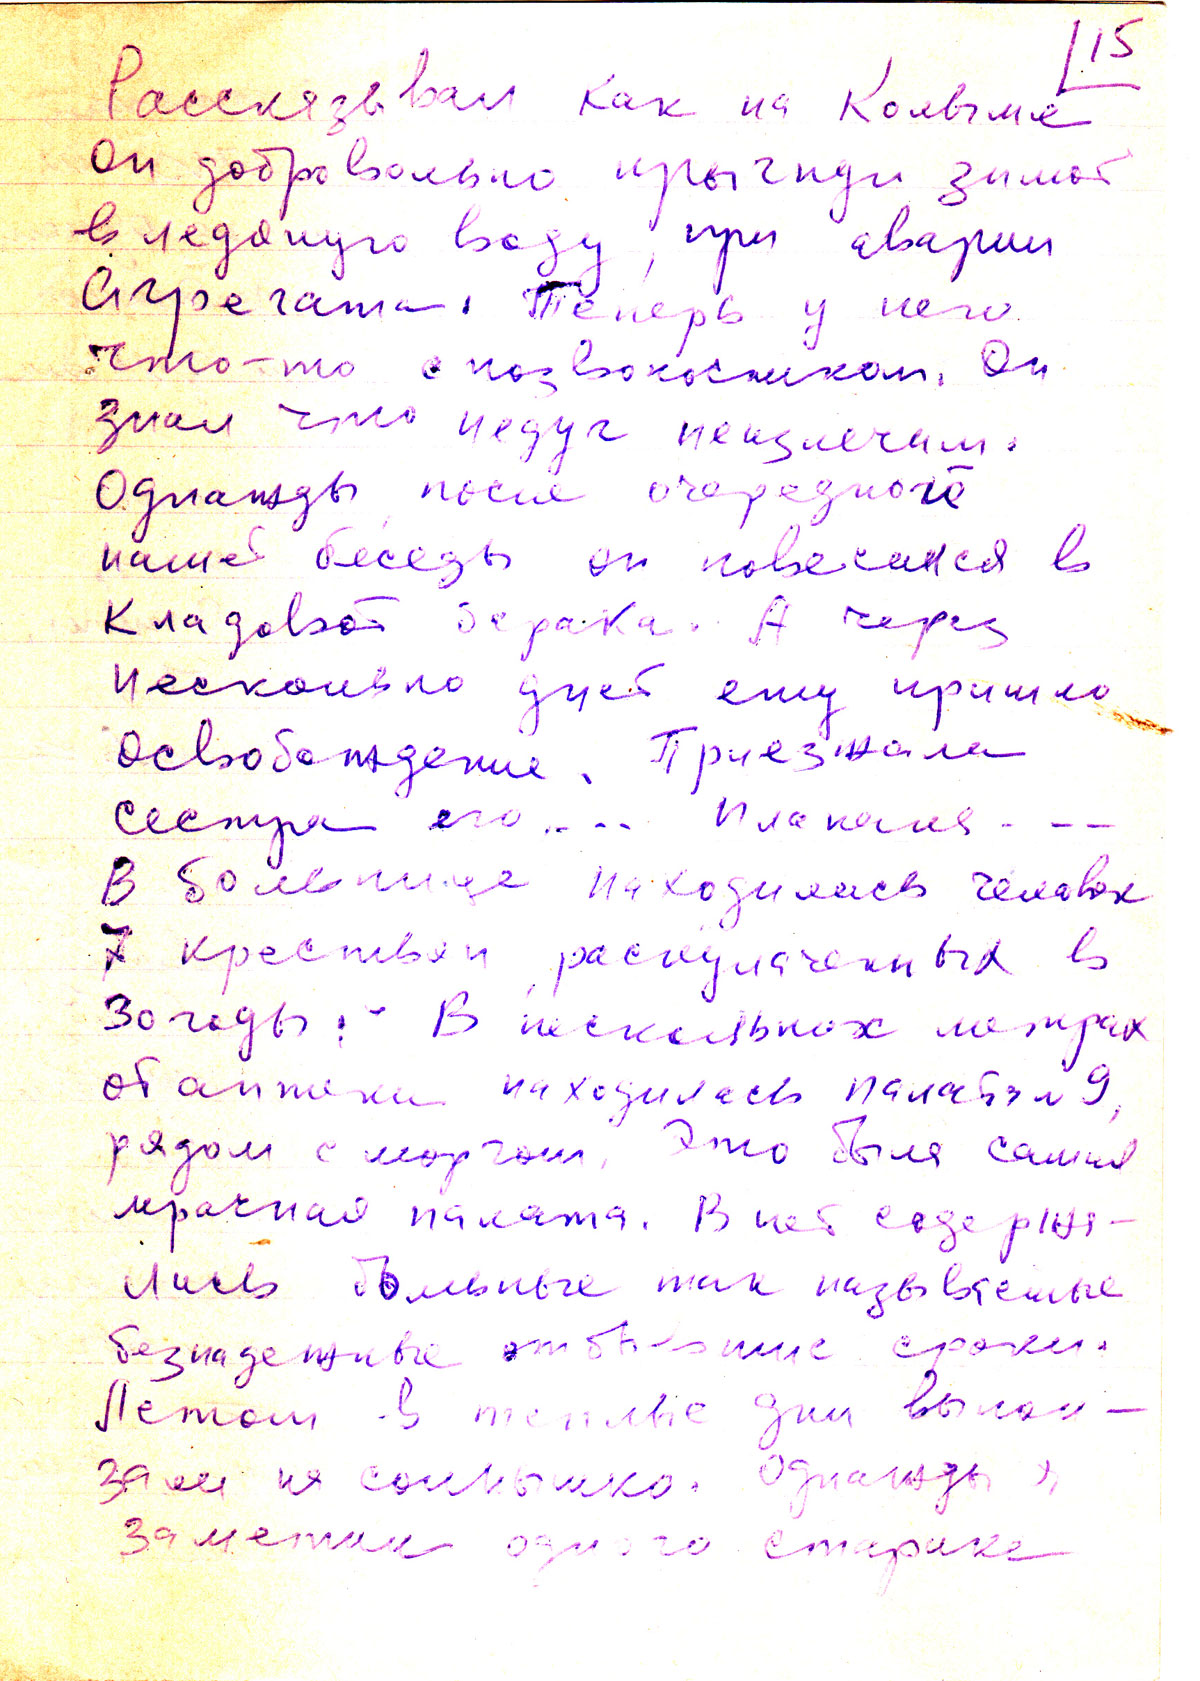 15
Рассказывал как на Колыме
Он добровольно прыгнул зимой
в ледяную воду, при аварии
Агрегата. Теперь у него
что-то с позвоночником. Он
знал что недуг неизлечим.
Однажды, после очередной
нашей беседы он повесился в
Кладовой барака. А через
несколько дней ему пришло
освобождение. Приезжала
сестра его.... Плакала - - -
В больнице находилось человек
7 крестьян, раскулаченных в
30 годы! - В нескольких метрах
от аптеки находилась палата № 9,
рядом с моргом. Это была самая
мрачная палата. В ней содержа-
лись больные так называемые
безнадежные отбывшие сроки.
Летом в теплые дни выпол-
зали на солнышко. Однажды я
заметил одного старика